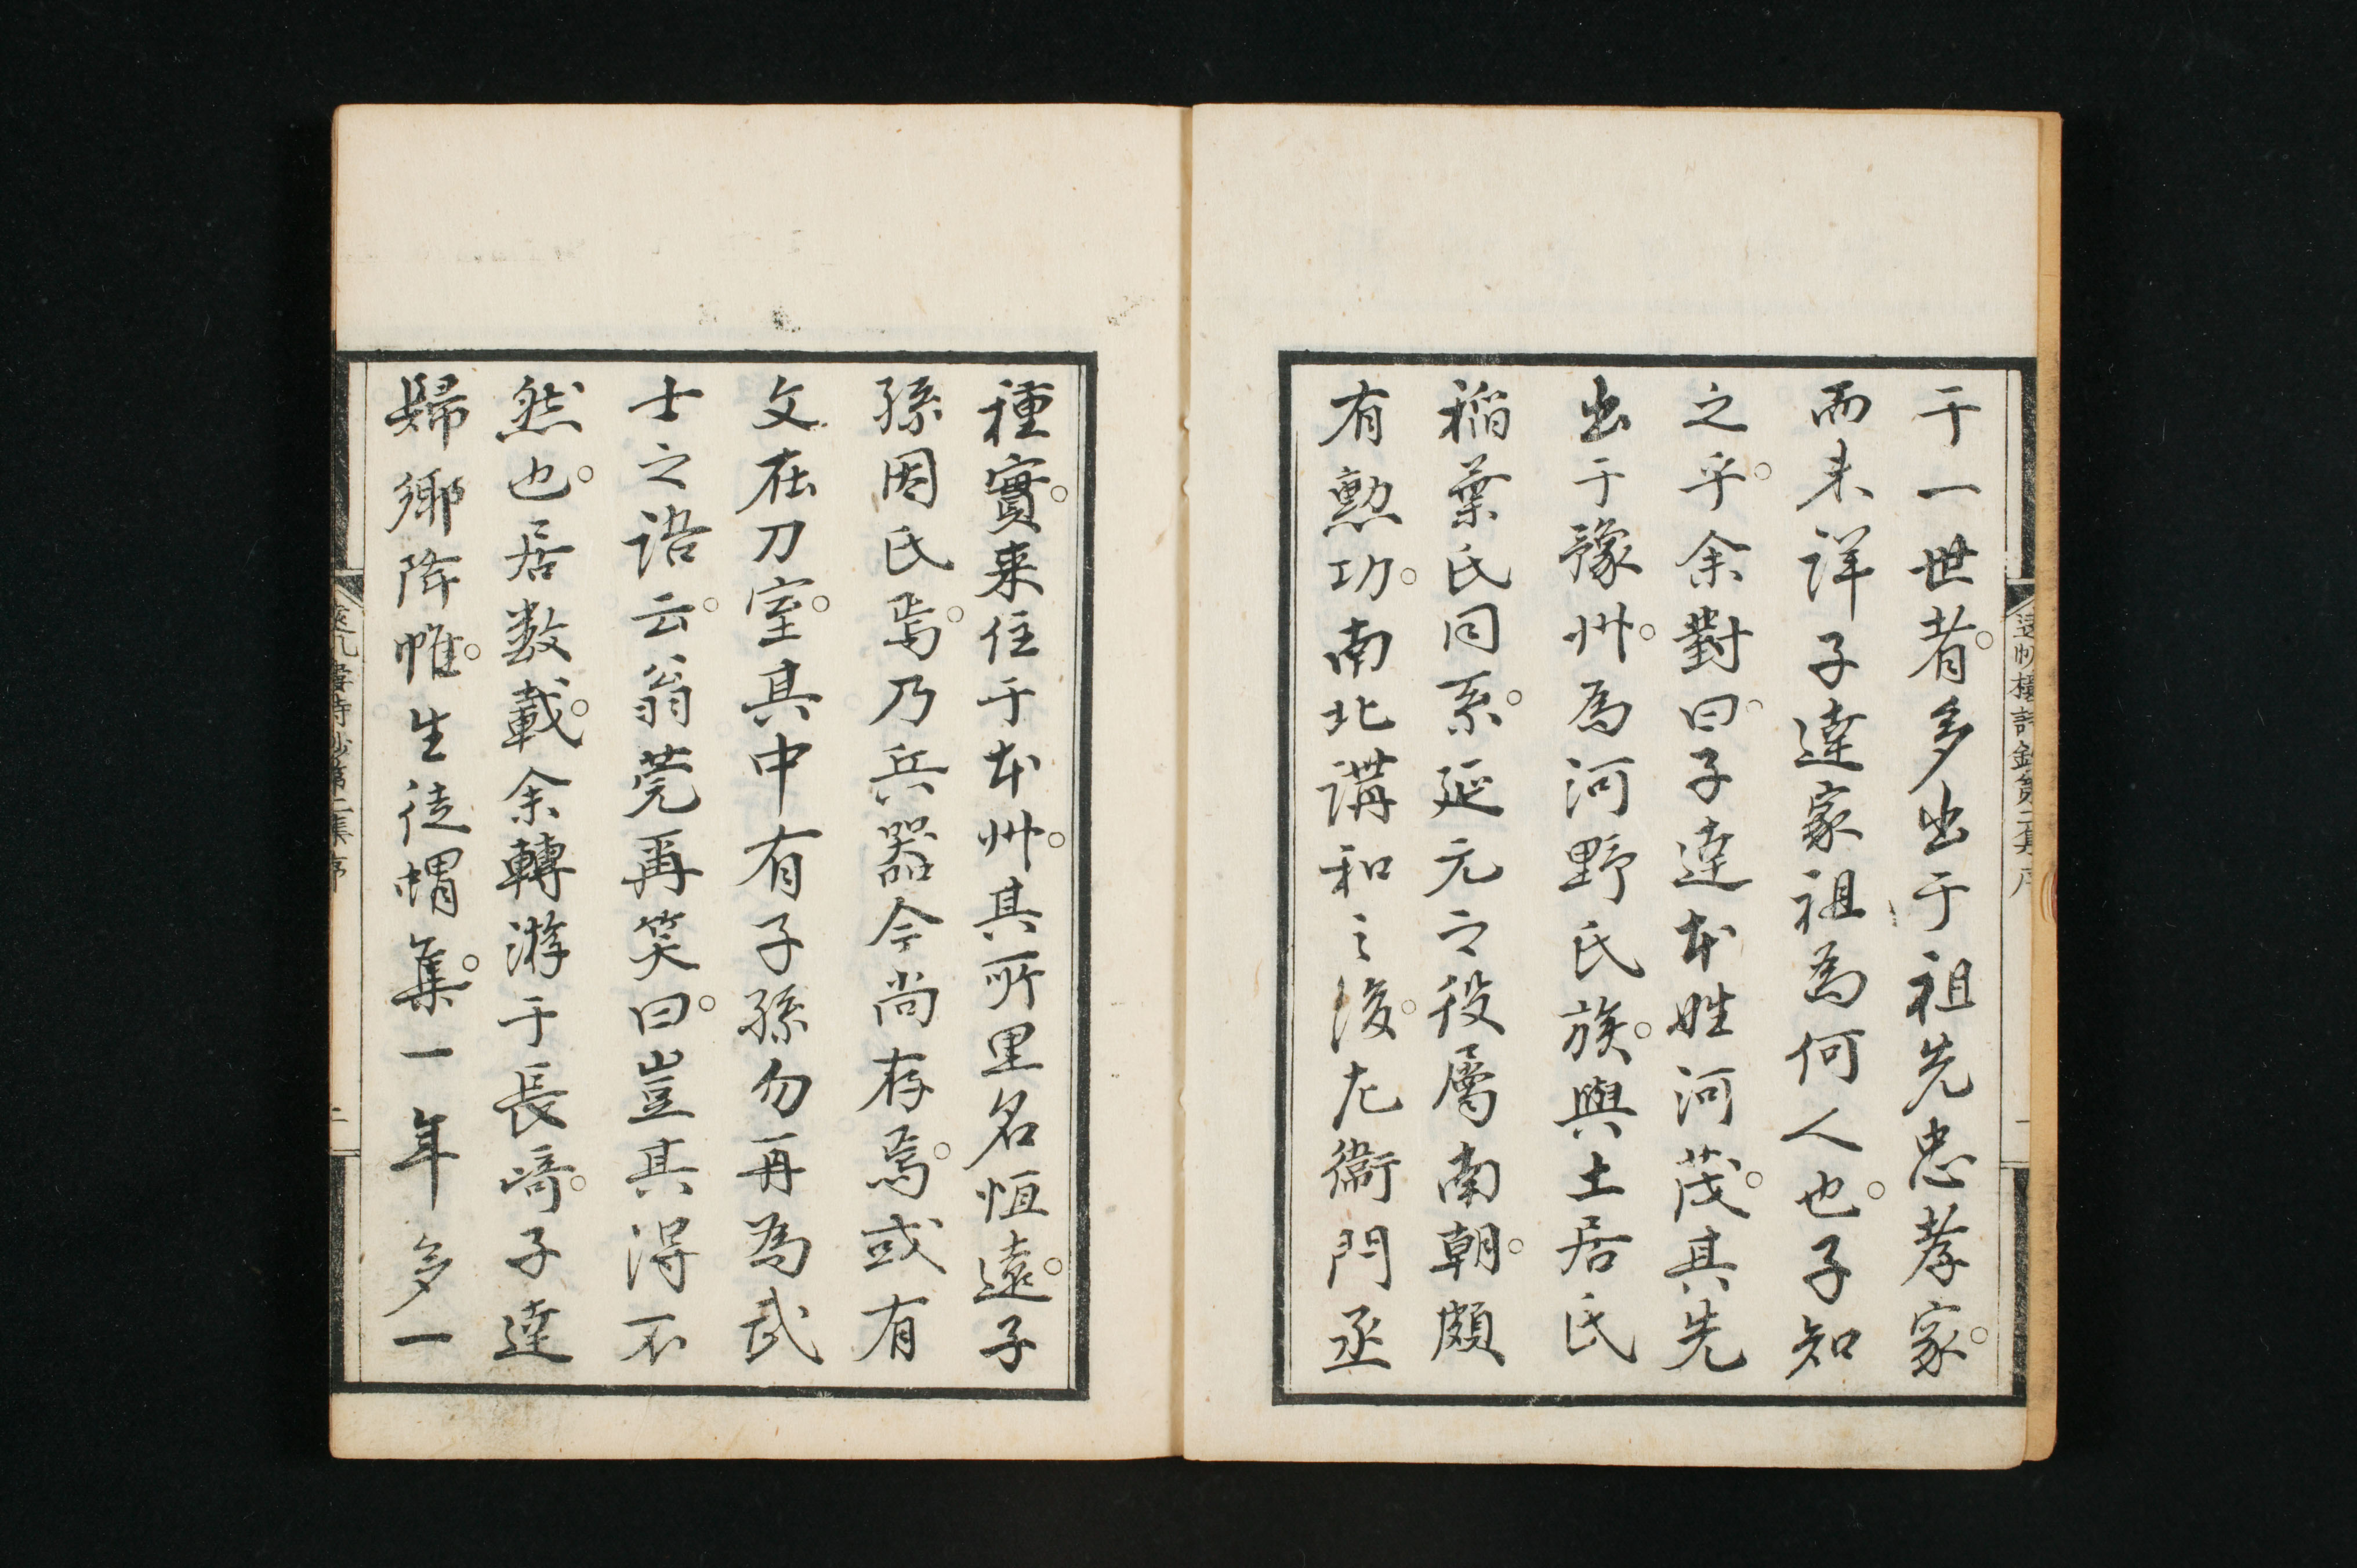 于一世者。多出于祖先忠孝家。
而未詳子達家祖為何人也。子知
之乎。余對曰。子達本姓河茂。其先
出于豫州。為河野氏族。與土居氏
稲葉氏同系。延元之役屬南朝。頗
有勲功。南北講和之後。左衞門丞
種實。来住于本州。其所里名恒遠。子
孫因氏焉。乃兵器今尚存焉。或有
文在刀室。其中有子孫勿再為武
士之語云。翁莞再笑曰。豈其得不
然也。居数載。余轉游于長﨑。子達
歸鄉降帷。生徒蝟集。一年多一